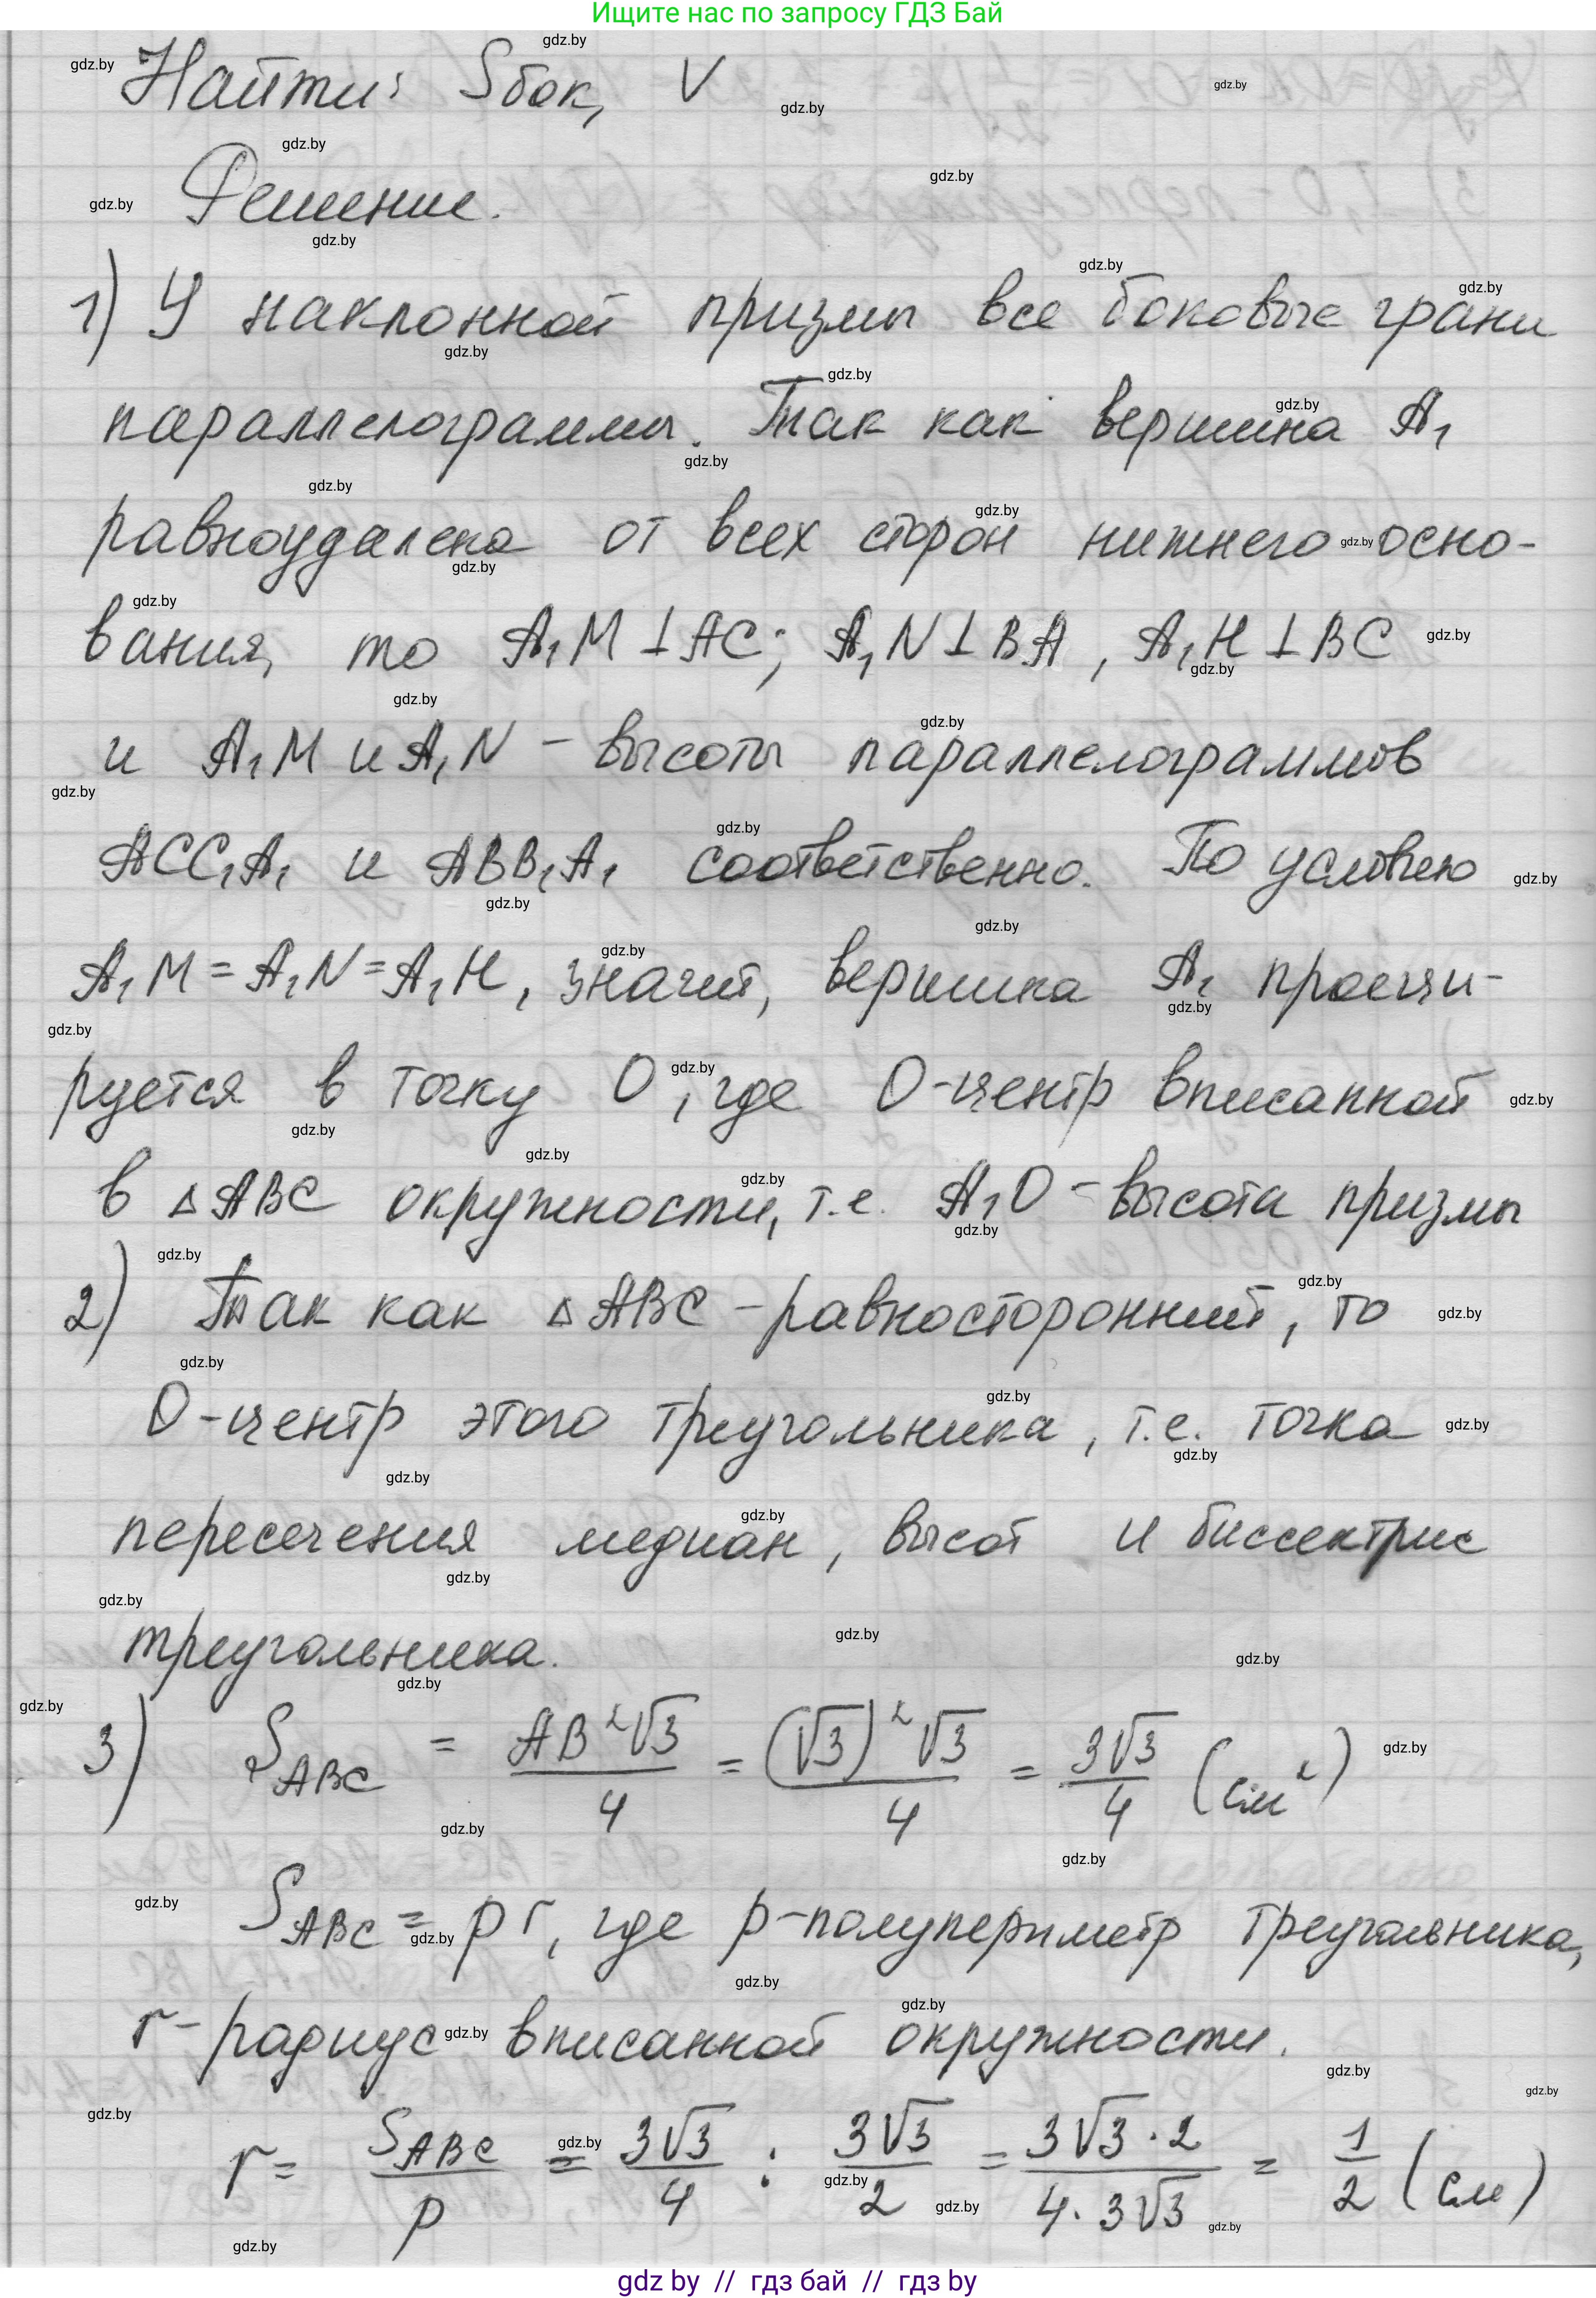 Ищите нас по запросу ГДЗ Бай
Найти: Sбок, V
Решение.
1) У наклонной призмы все боковые грани
параллелограммы. Так как вершина A₁
равноудалена от всех сторон нижнего осно-
вания, то A₁M⊥AC; A₁N⊥BA, A₁H⊥BC
и A₁M и A₁N - высоты параллелограммов
ACC₁A₁ и ABB₁A₁ соответственно. По условию
A₁M = A₁N = A₁H, значит, вершина A₁ проеци-
руется в точку O, где O-центр вписанной
в △ABC окружности, т.е. A₁O - высота призмы
2) Так как △ABC - равносторонний, то
O-центр этого треугольника, т.е. точка
пересечения медиан, высот и биссектрис
треугольника.
3) S_ABC = AB²√3/4 = (√3)²√3/4 = 3√3/4 (см²)
S_ABC = pr, где p-полупериметр треугольника,
r-радиус вписанной окружности.
r = S_ABC/p = 3√3/4 : 3√3/2 = 3√3·2/4·3√3 = 1/2 (см)
gdz by // гдз бай // гдз by